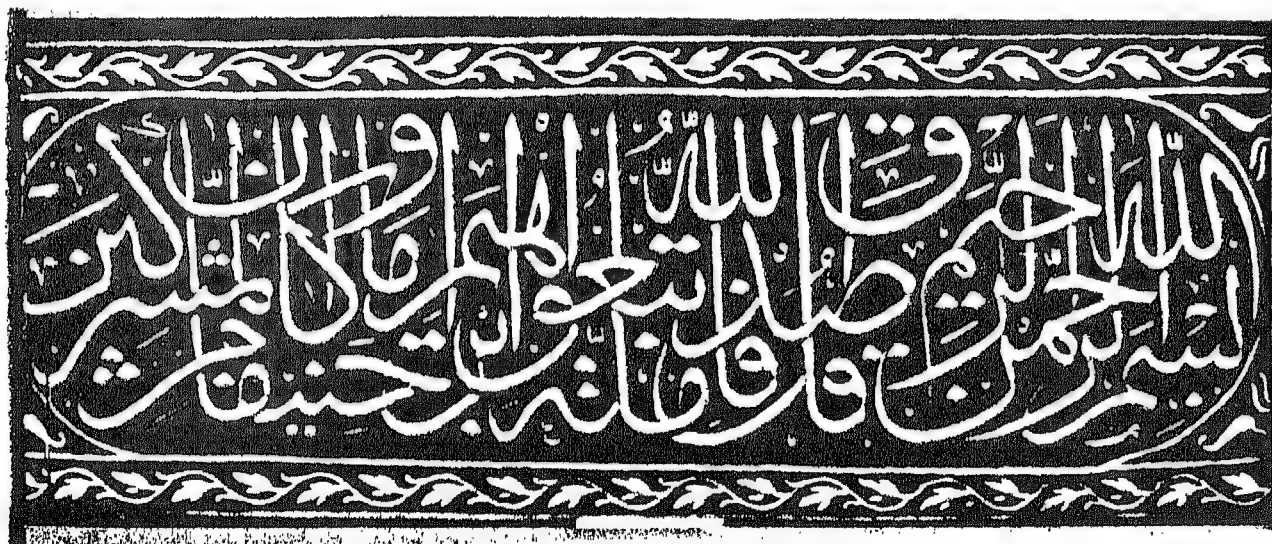 بسم الله الرحمن الرحيم قل صدق الله فاتبعوا ملة ابرهيم حنيفا وما كان من المشركين